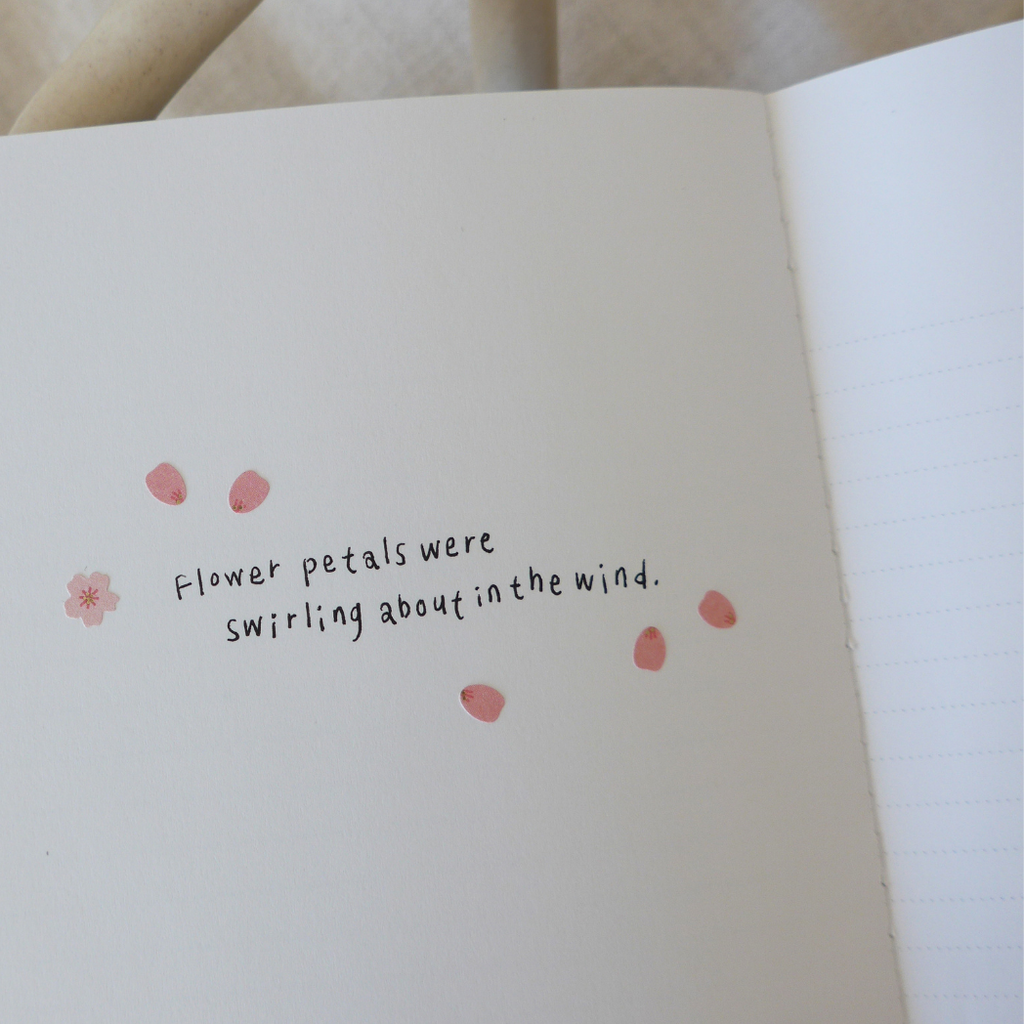 Flower petals were
swirling about in the wind.